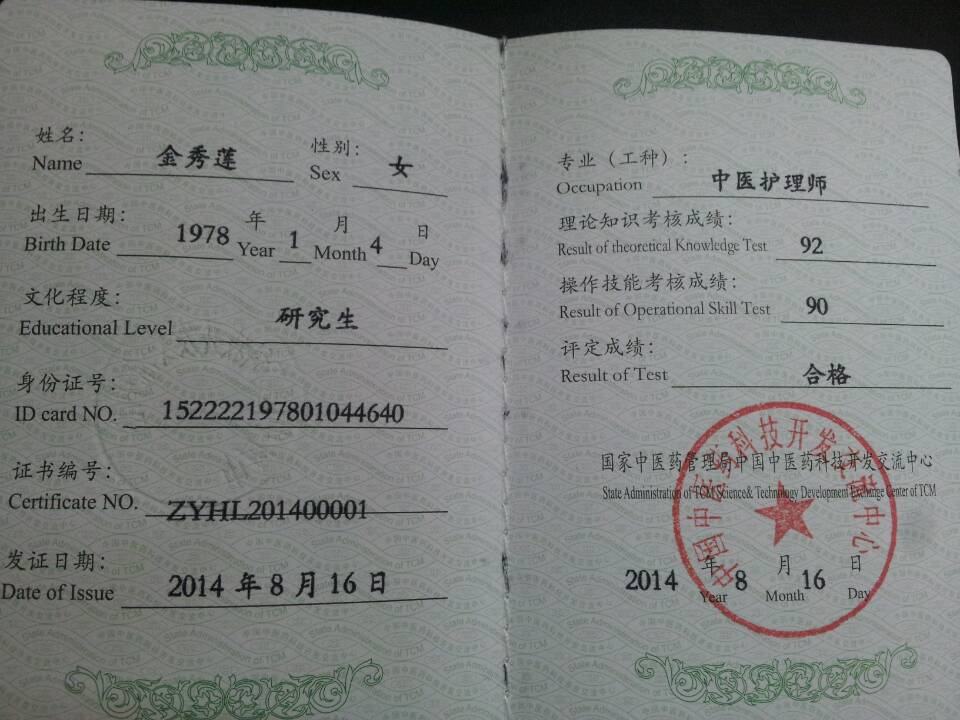 姓名：
Name 金秀莲
性别：
Sex 女
出生日期：
Birth Date 1978 年 Year 1 月 Month 4 日 Day
文化程度：
Educational Level 研究生
身份证号：
ID card NO. 152222197801044640
证书编号：
Certificate NO. ZYHL201400001
发证日期：
Date of Issue 2014 年 8 月 16 日
专业（工种）：
Occupation 中医护理师
理论知识考核成绩：
Result of theoretical Knowledge Test 92
操作技能考核成绩：
Result of Operational Skill Test 90
评定成绩：
Result of Test 合格
国家中医药管理局中国中医药科技开发交流中心
State Administration of TCM Science& Technology Development Exchange Center of TCM
中国中医药科技开发交流中心
2014 年 Year 8 月 Month 16 日 Day